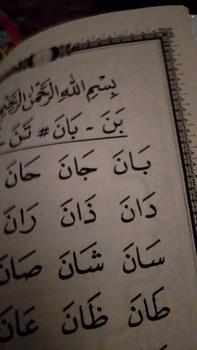 بِسْمِ اللهِ الرَّحْمٰنِ الرَّحِيْمِ
بَنَ - بَانَ # تَنَ -
بَانَ جَانَ حَانَ
دَانَ ذَانَ رَانَ
سَانَ شَانَ صَانَ
طَانَ ظَانَ عَانَ